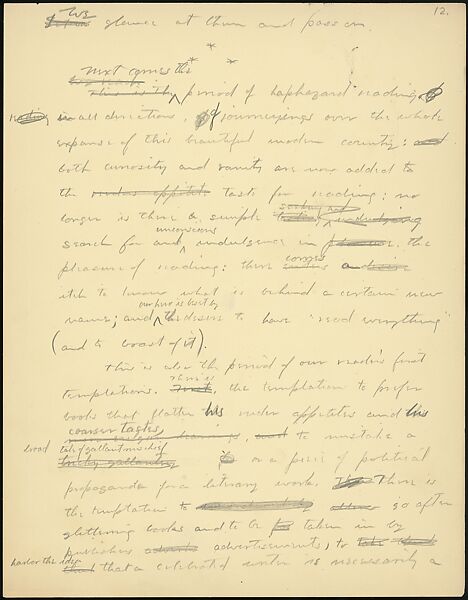 12.
We glance at them and pass on.
* * *
next comes the
This is the period of haphazard reading
in all directions, of journeyings over the whole
expanse of this beautiful modern country: and
both curiosity and vanity are now added to
the taste for reading: no
longer is there a simple seeking and
unconscious
search for and indulgence in the
pleasure of reading: there comes an
itch to know what is behind a certain new
our hero is beset by
name; and the desire to have "read everything"
(and to boast of it).
This is also the period of our reader's first
There is
temptations. the temptation to prefer
books that flatter his ruder appetites and his
coarser tastes, to mistake a
broad tale of gallant mischief
or a piece of political
propaganda for a literary work. There is
the temptation to go after
glittering books and to be taken in by
publishers advertisements, to
harbor the idea that a celebrated writer is necessarily a